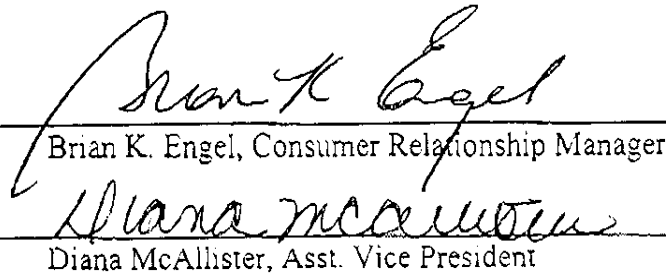 Brian K Engel
Brian K. Engel, Consumer Relationship Manager
Diana McAllister
Diana McAllister, Asst. Vice President